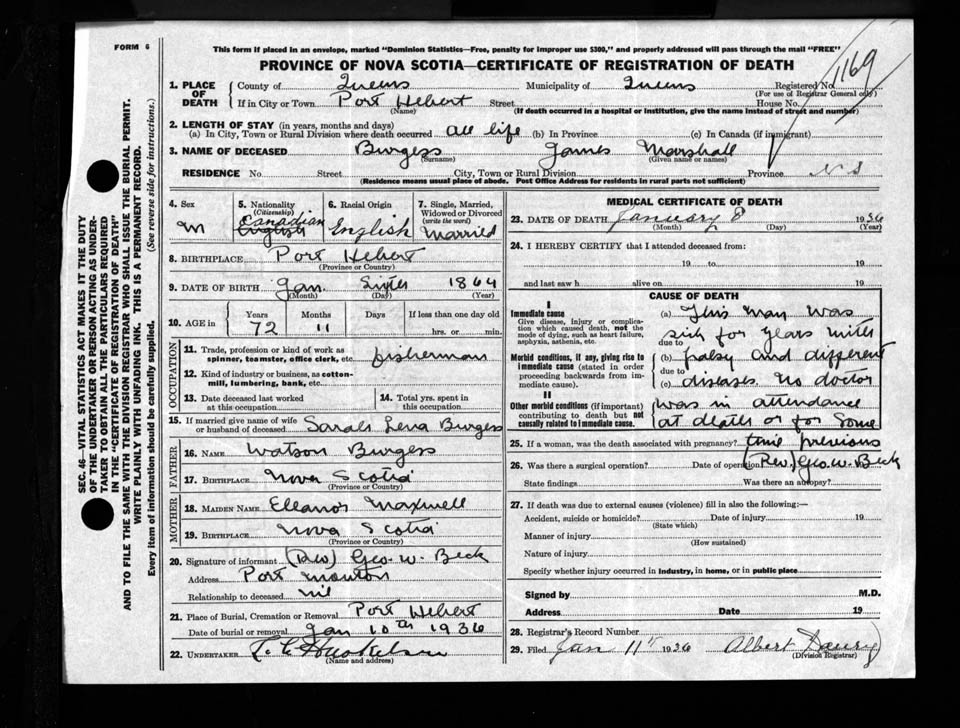 FORM 6
This form if placed in an envelope, marked "Dominion Statistics—Free, penalty for improper use $300," and properly addressed will pass through the mail "FREE"
PROVINCE OF NOVA SCOTIA—CERTIFICATE OF REGISTRATION OF DEATH
1. PLACE OF DEATH
County of Queens Municipality of Queens Registered No. 1169
(For use of Registrar General only)
If in City or Town Port Hebert Street House No.
(Name) (If death occurred in a hospital or institution, give the name instead of street and number)
2. LENGTH OF STAY (in years, months and days)
(a) In City, Town or Rural Division where death occurred all life (b) In Province (c) In Canada (if immigrant)
3. NAME OF DECEASED Burgess James Marshall
(Surname) (Given name or names)
RESIDENCE No. Street City, Town or Rural Division Province N S
(Residence means usual place of abode. Post Office Address for residents in rural parts not sufficient)
4. Sex
M
5. Nationality
(Citizenship)
Canadian
English
6. Racial Origin
English
7. Single, Married, Widowed or Divorced
(write the word)
Married
8. BIRTHPLACE Port Hebert
(Province or Country)
9. DATE OF BIRTH Jan. 1864
(Month) (Day) (Year)
10. AGE in
Years Months Days If less than one day old
72 11 hrs. or min.
OCCUPATION
11. Trade, profession or kind of work as spinner, teamster, office clerk, etc. fisherman
12. Kind of industry or business, as cotton-mill, lumbering, bank, etc.
13. Date deceased last worked at this occupation
14. Total yrs. spent in this occupation
15. If married give name of wife or husband of deceased Sarah Lena Burgess
FATHER
16. Name Watson Burgess
17. Birthplace Nova Scotia
(Province or Country)
MOTHER
18. Maiden Name Eleanor Maxwell
19. Birthplace Nova Scotia
(Province or Country)
20. Signature of informant (Rev) Geo. W. Beck
Address Port Mouton
Relationship to deceased nil
21. Place of Burial, Cremation or Removal Port Hebert
Date of burial or removal Jan 10th 1936
22. Undertaker
(Name and address)
MEDICAL CERTIFICATE OF DEATH
23. DATE OF DEATH January 8 1936
(Month) (Day) (Year)
24. I HEREBY CERTIFY that I attended deceased from:
19 to 19
and last saw h alive on 19
CAUSE OF DEATH
I
Immediate cause
Give disease, injury or complication which caused death, not the mode of dying, such as heart failure, asphyxia, asthenia, etc.
Morbid conditions, if any, giving rise to immediate cause (stated in order proceeding backwards from immediate cause).
II
Other morbid conditions (if important) contributing to death but not causally related to immediate cause.
(a) This man was
sick for years with
due to
(b) palsy and different
due to
(c) diseases no doctor
was in attendance
at death or for some
25. If a woman, was the death associated with pregnancy? time previous
26. Was there a surgical operation? Date of operation (Rev) Geo. W. Beck
State findings Was there an autopsy?
27. If death was due to external causes (violence) fill in also the following:—
Accident, suicide or homicide? Date of injury 19
(State which)
Manner of injury
(How sustained)
Nature of injury
Specify whether injury occurred in industry, in home, or in public place
Signed by M.D.
Address Date 19
28. Registrar's Record Number
29. Filed Jan 11 1936 Albert
(Division Registrar)
SEC. 46—VITAL STATISTICS ACT MAKES IT THE DUTY
OF THE UNDERTAKER OR PERSON ACTING AS UNDER-
TAKER TO OBTAIN ALL THE PARTICULARS REQUIRED
IN THE "CERTIFICATE OF REGISTRATION OF DEATH"
AND TO FILE THE SAME WITH THE DIVISION REGISTRAR WHO SHALL ISSUE THE BURIAL PERMIT.
WRITE PLAINLY WITH UNFADING INK. THIS IS A PERMANENT RECORD.
Every item of information should be carefully supplied. (See reverse side for instructions.)